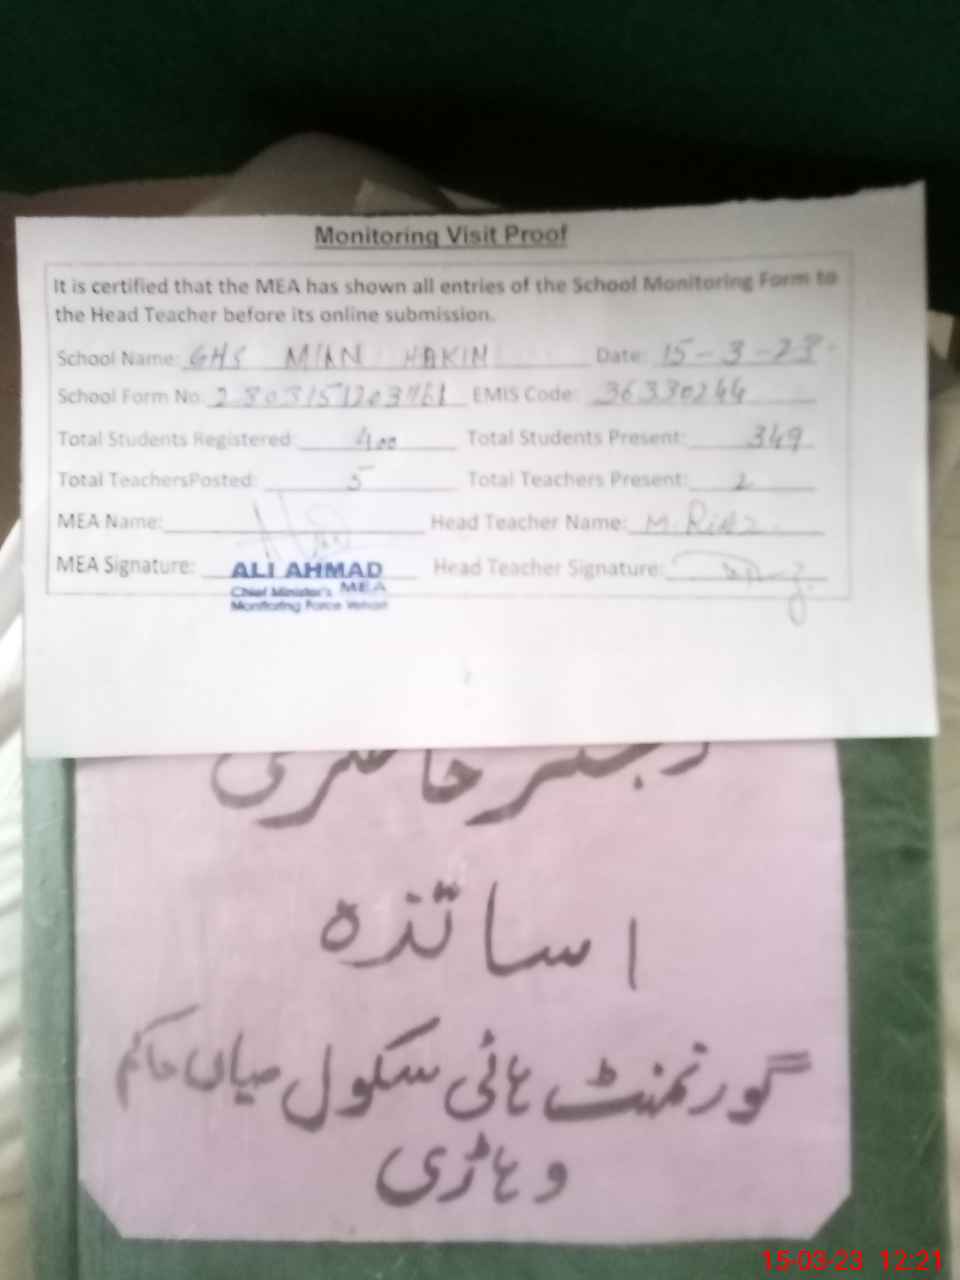 Monitoring Visit Proof
It is certified that the MEA has shown all entries of the School Monitoring Form to
the Head Teacher before its online submission.
School Name: GHS MIAN HAKIM Date: 15-3-23
School Form No: EMIS Code: 36330244
Total Students Registered: 400 Total Students Present: 349
Total TeachersPosted: 5 Total Teachers Present: 2
MEA Name: Head Teacher Name: M. Riaz
MEA Signature: Head Teacher Signature:
ALI AHMAD
Chief Minister's MEA
Monitoring Force Vehari
رجسٹر حاضری
اساتذہ
گورنمنٹ ہائی سکول میاں حاکم
وہاڑی
15-03-23 12:21